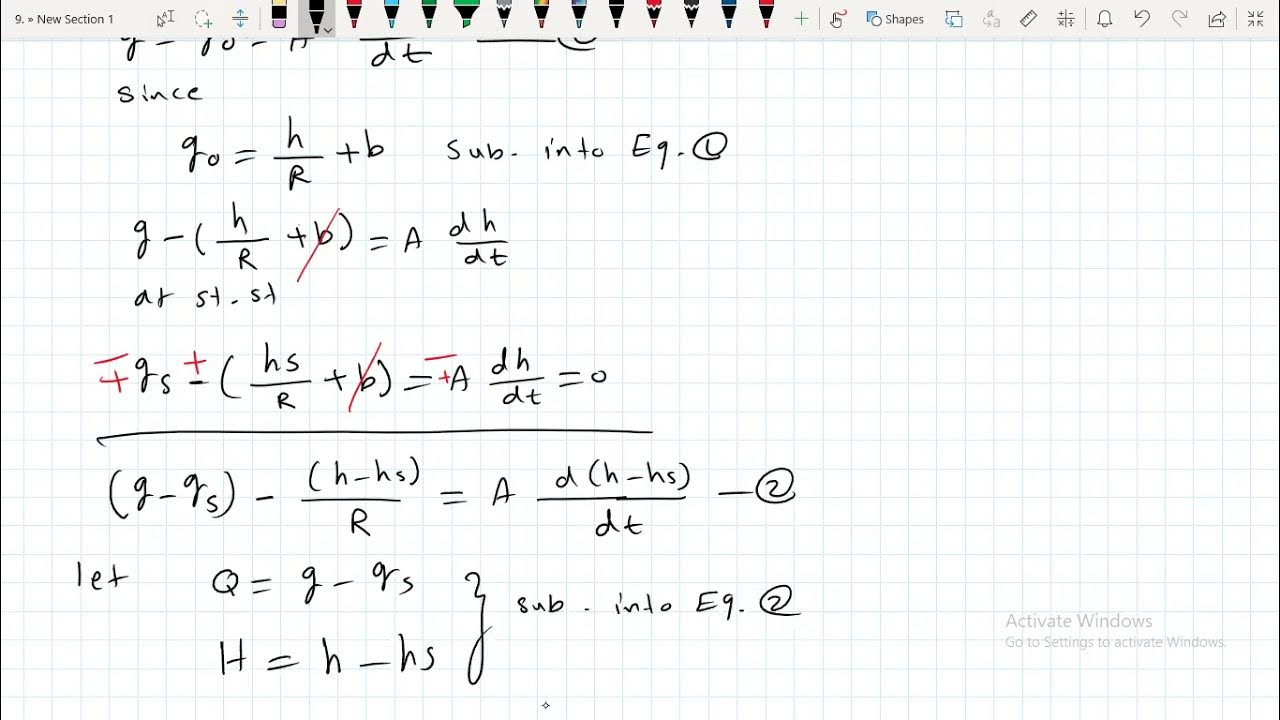 9. » New Section 1
Shapes
dt
since
q₀ = h/R + b sub. into Eq. ①
q - (h/R + b) = A dh/dt
at st. st
qₛ - (hs/R + b) = A dh/dt = 0
(q - qₛ) - (h - hs)/R = A d(h - hs)/dt — ②
let Q = q - qₛ } sub. into Eq. ②
H = h - hs
Activate Windows
Go to Settings to activate Windows.